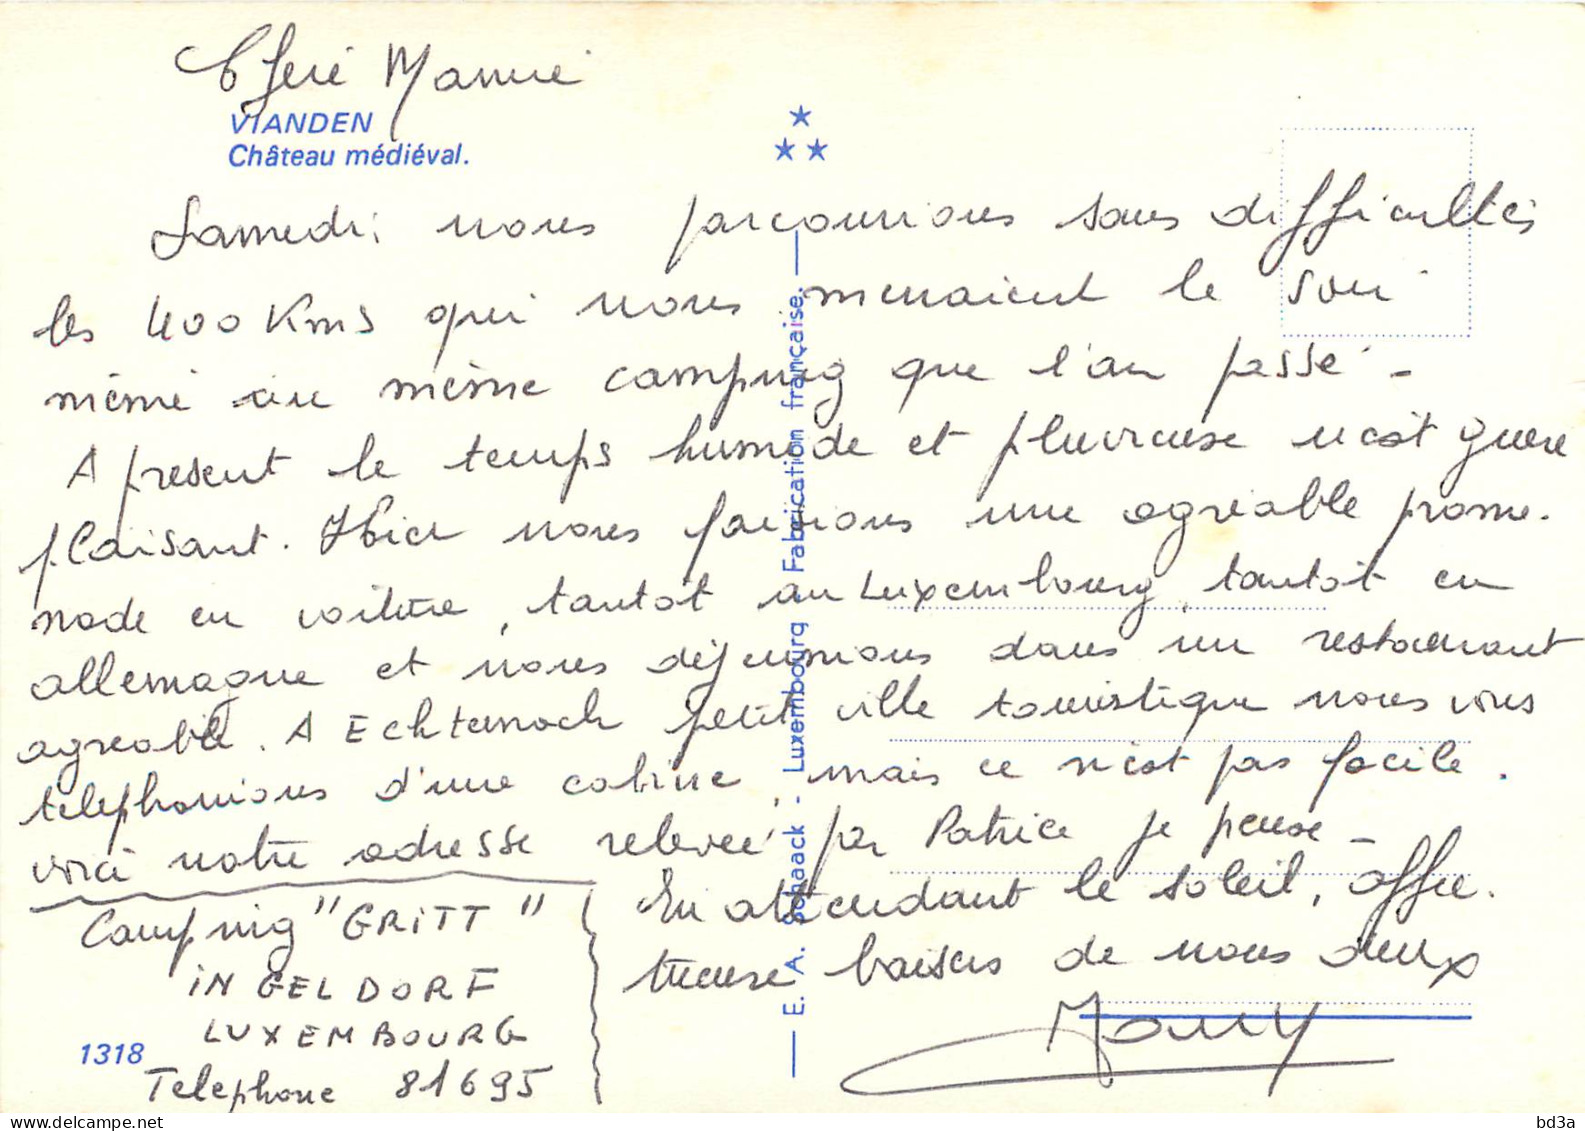 Chère Mamie
VIANDEN
Château médiéval.
Samedi nous parcourions sans difficultés
les 400 Kms qui nous menaient le soir
même au même camping que l'an passé -
A present le temps humide et pluvieuse n'est guere
plaisant. Hier nous faisions une agréable prome-
nade en voiture, tantôt au Luxembourg, tantôt en
allemagne et nous déjeunions dans un restaurant
agreable. A Echternach petit ville touristique nous vous
telephonions d'une cabine, mais ce n'est pas facile.
voici notre adresse relevee par Patrice je pense -
En attendant le soleil, affec-
tueuse baisers de nous deux
Camping "GRITT"
IN GELDORF
LUXEMBOURG
Telephone 81695
1318
E. A. Schaack - Luxembourg Fabrication française.
bd3a